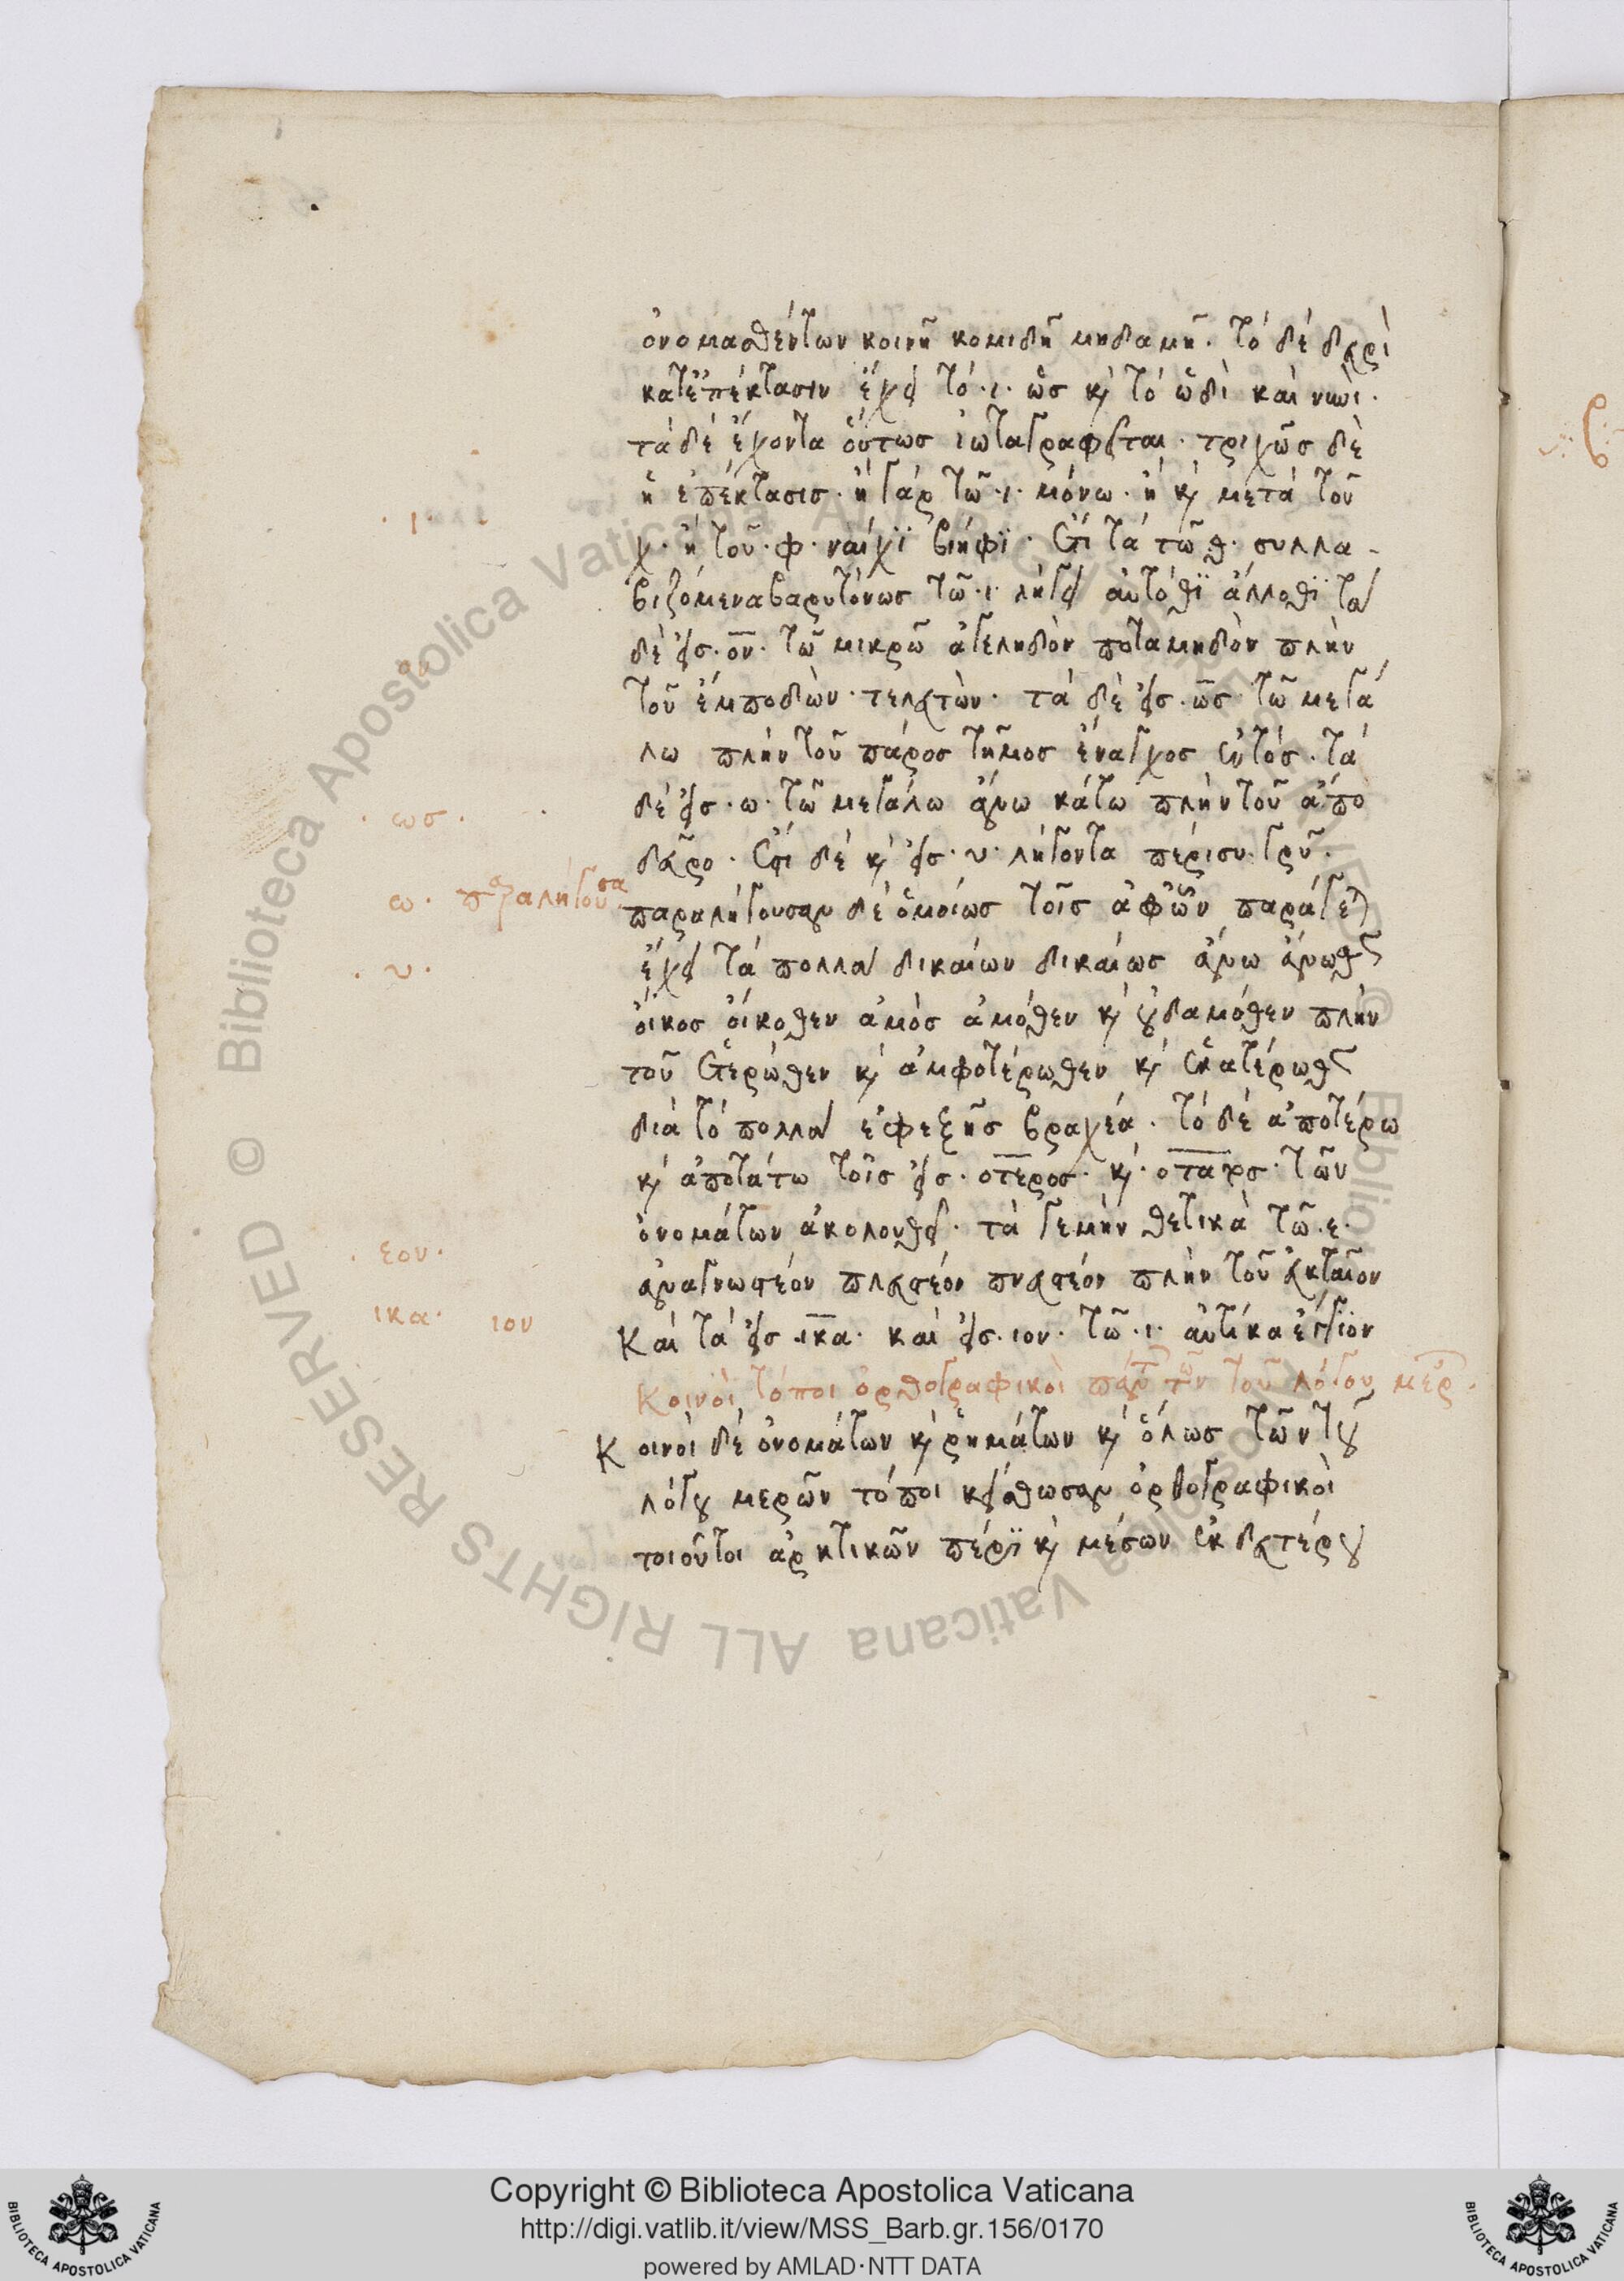 ὀνομασθέντων κοινῆ κομιδῆ μηδαμῆ. τὸ δὲ δευρὶ
κατ' ἐπέκτασιν ἔχει τό ·ι· ὡς καὶ τὸ ὡδὶ καὶ νυνί·
τὰ δὲ ἔχοντα οὕτως ἰωταγραφεῖται · τριχῶς δὲ
ἡ ἐπέκτασις · ἢ γὰρ τῶ ·ι· μόνω · ἢ καὶ μετὰ τοῦ
χ · ἢ τοῦ · φ · ναίχϊ βιήφϊ · ἔτι τὰ τῶ θ · συλλα-
βιζόμενα βαρυτόνως τῶ ·ι· λήγει αὐτόθϊ ἄλλοθϊ τὰ
δὲ εἰς · ον · τῶ μικρῶ ἀγεληδὸν ποταμηδὸν πλὴν
τοῦ ἐμποδὼν · τελευτῶν · τὰ δὲ εἰς · ως · τῶ μεγά
λω πλὴν τοῦ πάρος τῆμος ἔναγχος ἐντός · τὰ
δὲ εἰς · ω · τῶ μεγάλω ἄνω κάτω πλὴν τοῦ ἀπο
δεῦρο · ἔτι δὲ καὶ εἰς · υ · λήγοντα πέρισυ · γρῦ ·
παραλήγουσαν δὲ ὁμοίως τοῖς ἀφ' ὧν παράγεται
ἔχει τὰ πολλὰ δικαίων δικαίως ἄνω ἄνωθεν
οἶκος οἴκοθεν ἀμὸς ἀμόθεν καὶ οὐδαμόθεν πλὴν
τοῦ ἑτέρωθεν καὶ ἀμφοτέρωθεν καὶ ἑκατέρωθεν
διὰ τὸ πολλὰ ἐφεξῆς βραχέα · τὸ δὲ ἀποτέρω
καὶ ἀποτάτω τοῖς εἰς · οτερος · καὶ · οτατος · τῶν
ὀνομάτων ἀκολουθεῖ · τὰ γε μὴν θετικὰ τῶ · ε ·
ἀναγνωστέον πλευστέον πνευστέον πλὴν τοῦ
Καὶ τὰ εἰς · ικα · καὶ εἰς · ιον · τῶ · ι · αὐτίκα
Κοινοὶ τόποι ὀρθογραφικοὶ πάντων τῶν τοῦ λόγου μερ ·
Κοινοὶ δὲ ὀνομάτων καὶ ῥημάτων καὶ ὅλως τῶν τοῦ
λόγου μερῶν τόποι κείσθωσαν ὀρθογραφικοὶ
τοιοῦτοι ἀρκτικῶν πέρϊ καὶ μέσων ἐκ δευτέρου
· ι ·
ον
· ως ·
ω · παραλήγουσα
· υ ·
· εον ·
ικα · ιον
© Biblioteca Apostolica Vaticana ALL RIGHTS RESERVED
Copyright © Biblioteca Apostolica Vaticana
http://digi.vatlib.it/view/MSS_Barb.gr.156/0170
powered by AMLAD·NTT DATA
BIBLIOTECA APOSTOLICA VATICANA
BIBLIOTECA APOSTOLICA VATICANA